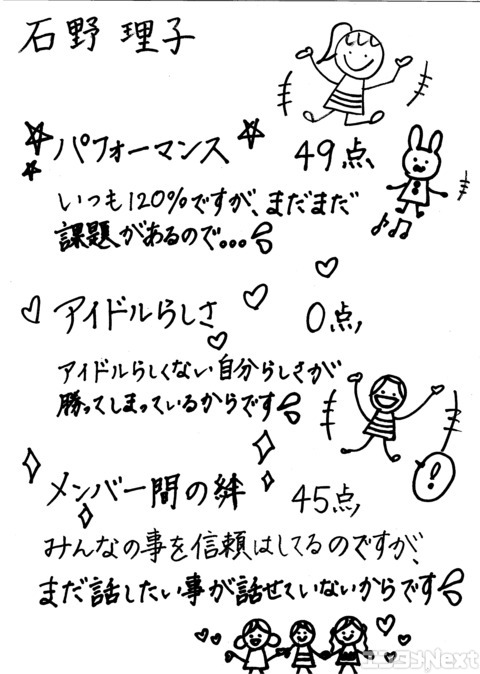 石野 理子
パフォーマンス 49点
いつも120%ですが、まだまだ
課題があるので...
アイドルらしさ 0点
アイドルらしくない自分らしさが
勝ってしまっているからです
!
メンバー間の絆 45点
みんなの事を信頼はしてるのですが、
まだ話したい事が話せていないからです
エンタメNext